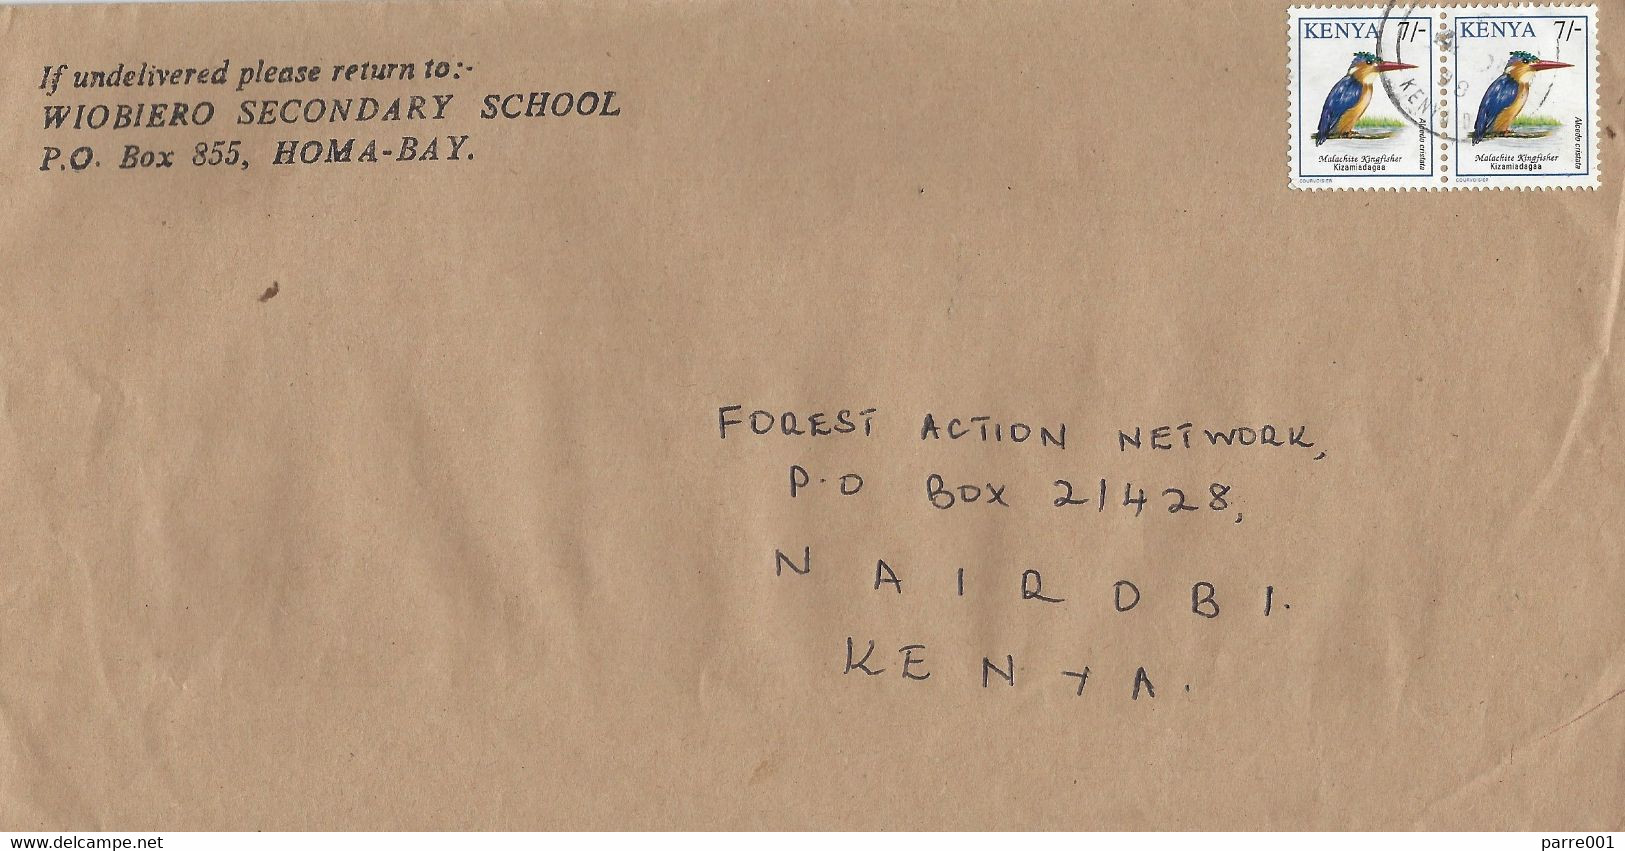 If undelivered please return to:-
WIOBIERO SECONDARY SCHOOL
P.O. Box 855, HOMA-BAY.
KENYA 7/-
Alcedo cristata
Malachite Kingfisher
Kizamiadagaa
COURVOISIER
KENYA 7/-
Alcedo cristata
Malachite Kingfisher
Kizamiadagaa
COURVOISIER
KENYA
FOREST ACTION NETWORK,
P.O BOX 21428,
NAIROBI.
KENYA.
www.delcampe.net
parre001